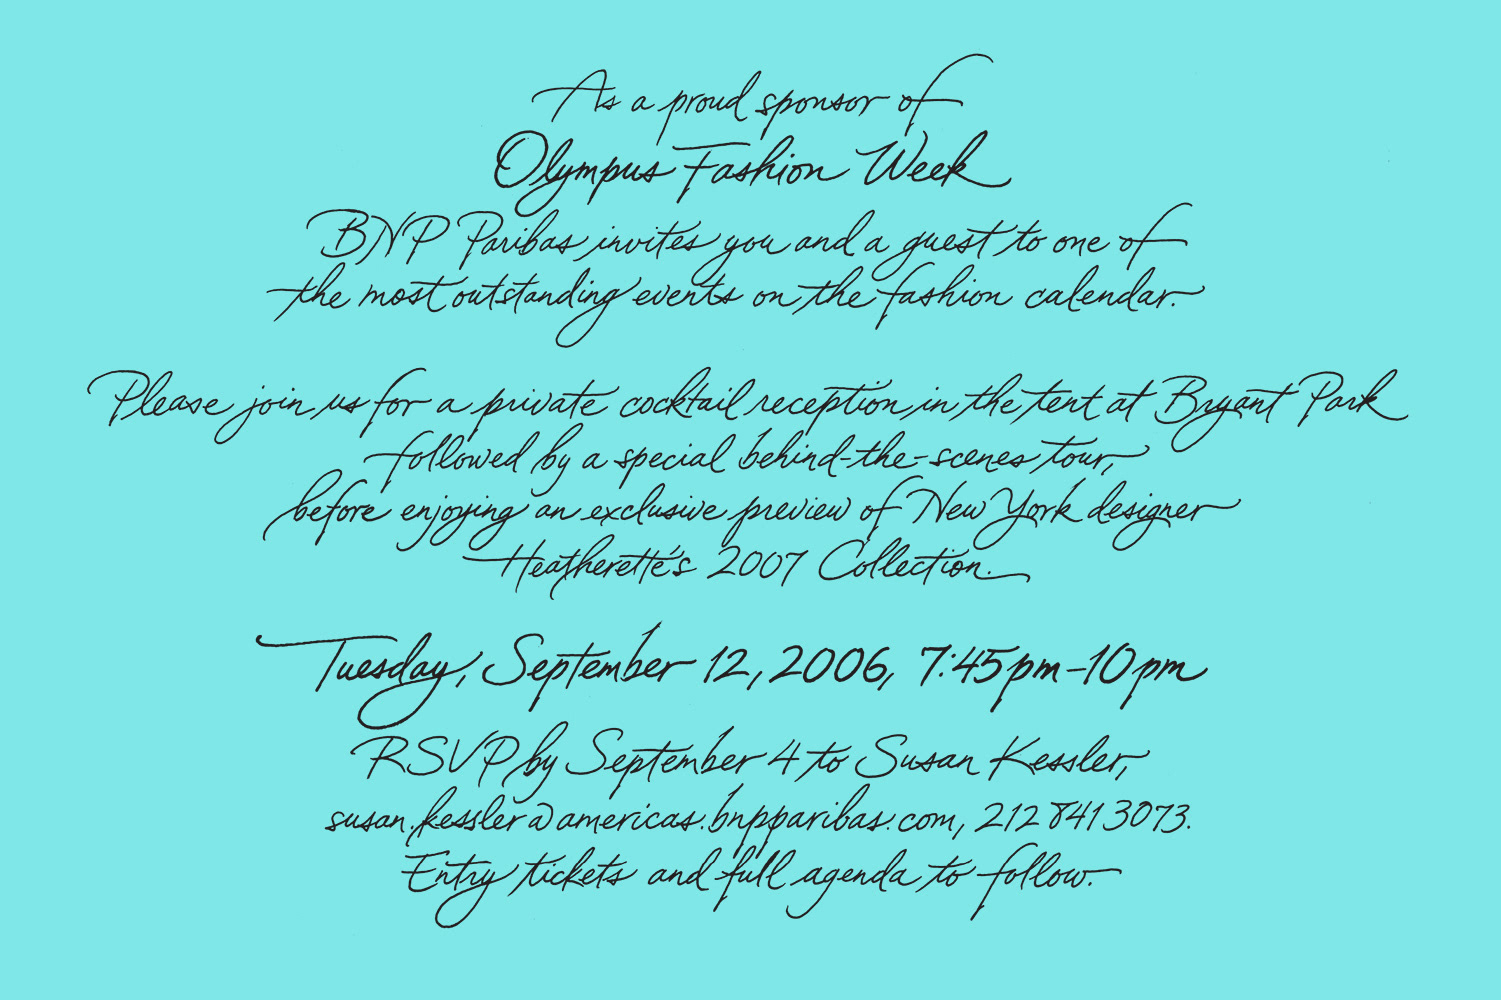 As a proud sponsor of
Olympus Fashion Week
BNP Paribas invites you and a guest to one of
the most outstanding events on the fashion calendar.
Please join us for a private cocktail reception in the tent at Bryant Park
followed by a special behind-the-scenes tour,
before enjoying an exclusive preview of New York designer
Heatherette's 2007 Collection.
Tuesday, September 12, 2006, 7:45pm-10pm
RSVP by September 4 to Susan Kessler,
susan.kessler@americas.bnpparibas.com, 212 841 3073.
Entry tickets and full agenda to follow.